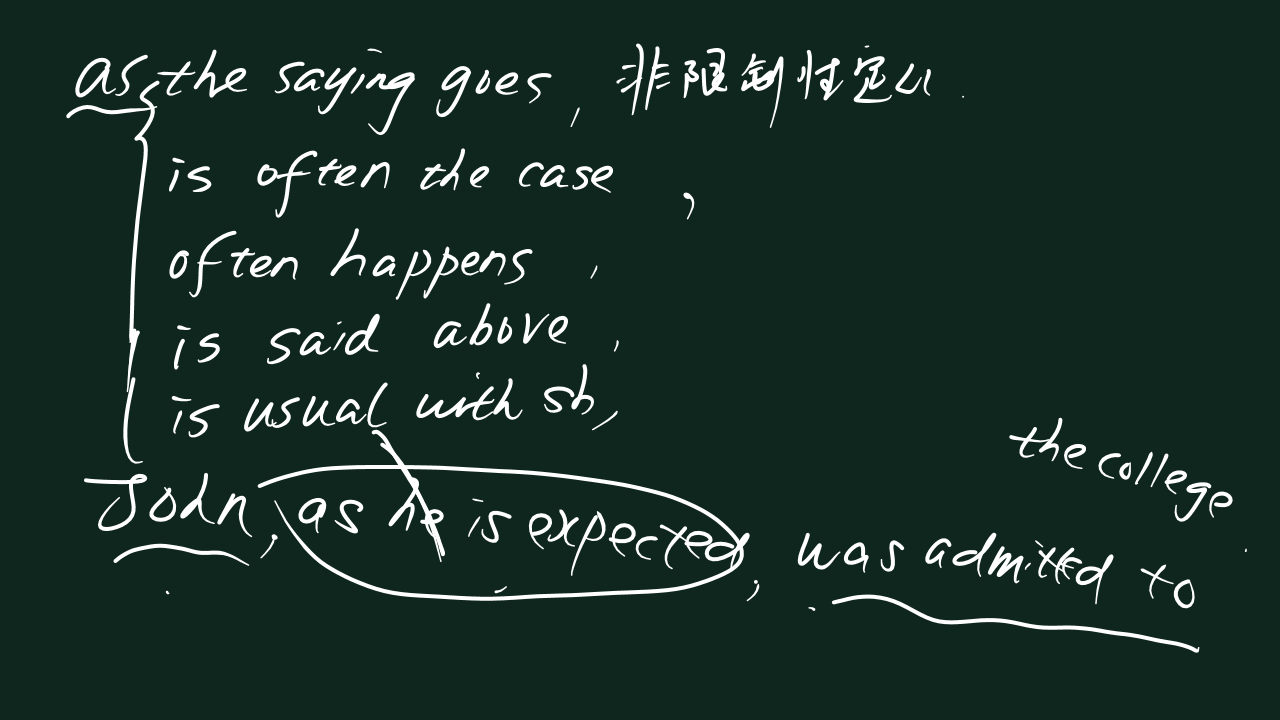 as the saying goes, 非限制性定从.
is often the case,
often happens,
is said above,
is usual with sb,
the college
John, as he is expected, was admitted to